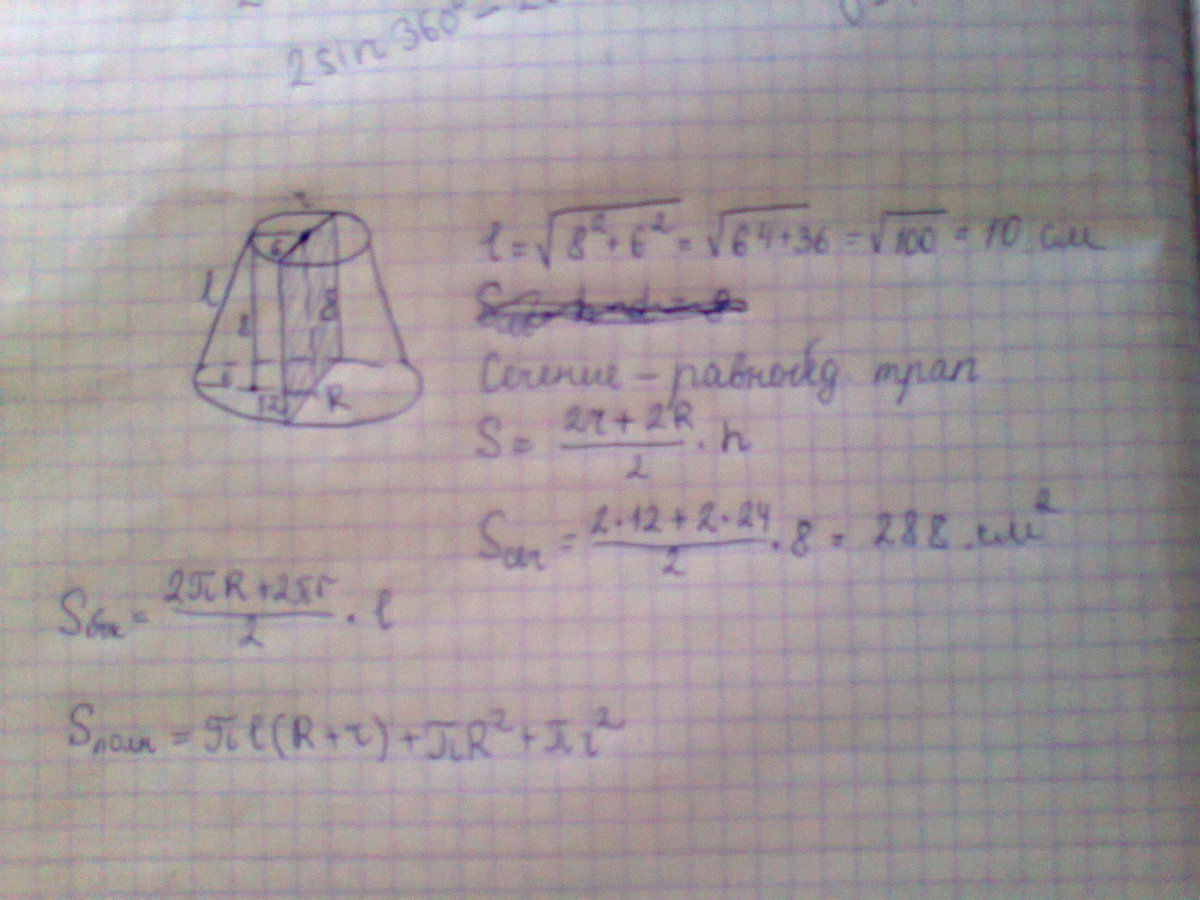 2 sin 360° - 2
l
6
8
8
6
12
R
l = √(8² + 6²) = √(64+36) = √100 = 10 см
Сечение – равнобед трап
S = (2r + 2R)/2 · h
Sсеч = (2·12 + 2·24)/2 · 8 = 288 см²
Sбок = (2πR + 2πr)/2 · l
Sполн = πl(R+r) + πR² + πr²